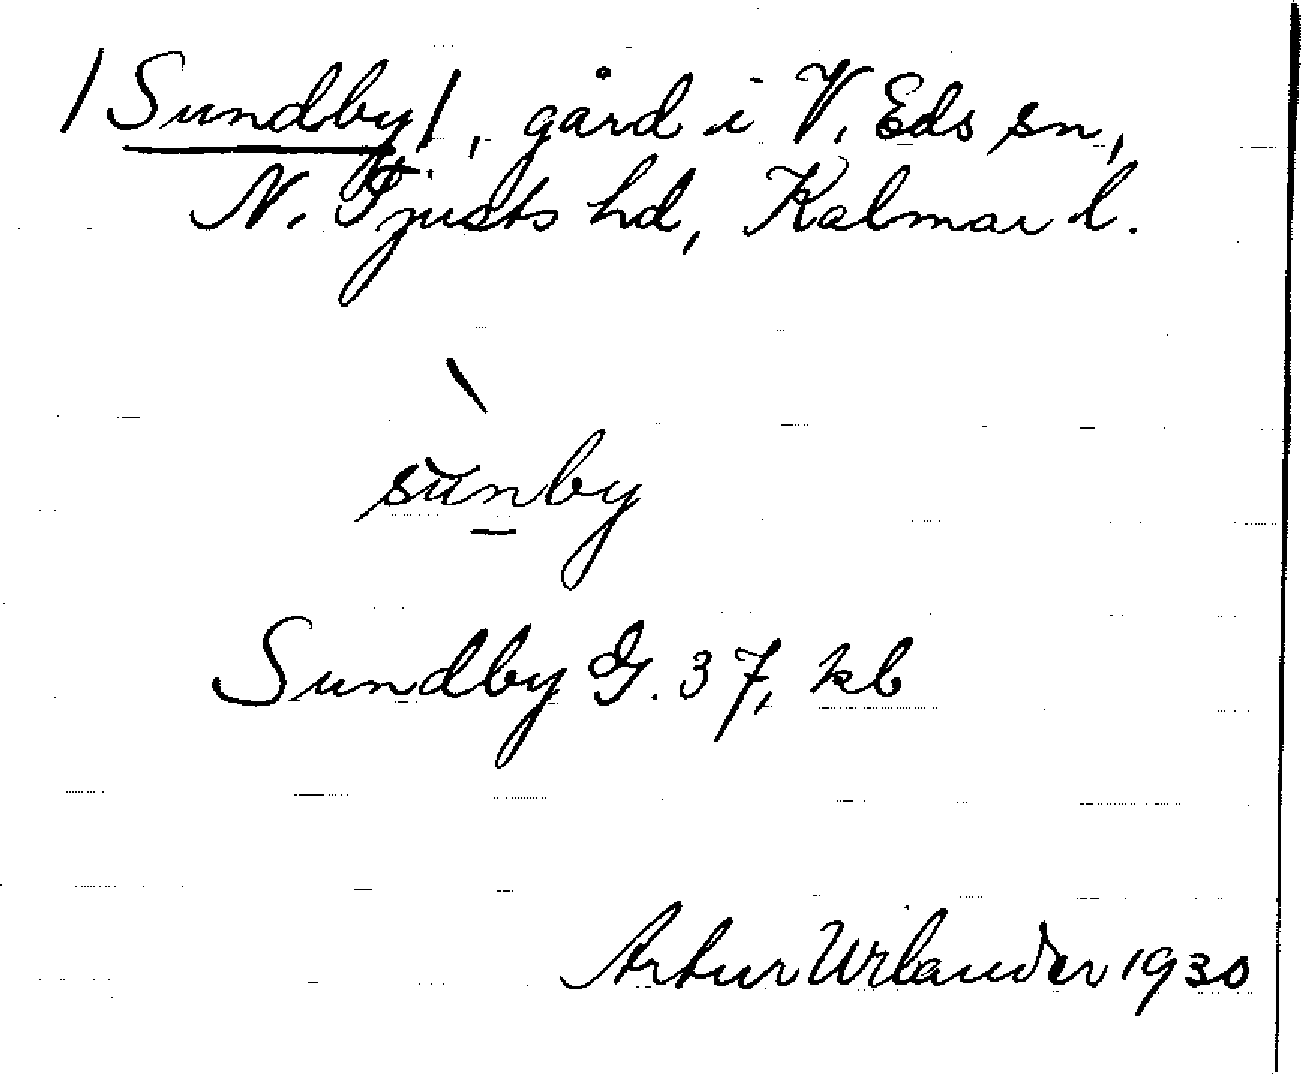 /Sundby/, gård i V. Eds sn,
N. Tjusts hd, Kalmar l.
sùnby
Sundby G. 37, kb
Artur Urlander 1930